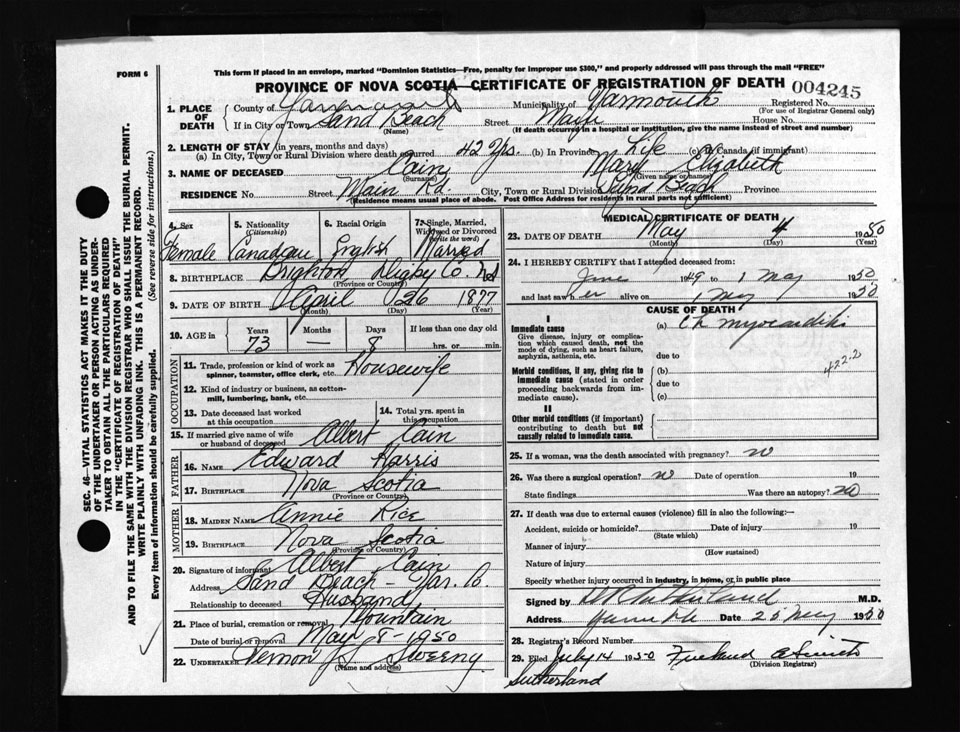 FORM 6
This form if placed in an envelope, marked "Dominion Statistics—Free, penalty for improper use $300," and properly addressed will pass through the mail "FREE"
PROVINCE OF NOVA SCOTIA—CERTIFICATE OF REGISTRATION OF DEATH 004245
1. PLACE OF DEATH County of Yarmouth Municipality of Yarmouth Registered No.
(For use of Registrar General only)
If in City or Town Sand Beach Street Main House No.
(Name) (If death occurred in a hospital or institution, give the name instead of street and number)
2. LENGTH OF STAY (in years, months and days)
(a) In City, Town or Rural Division where death occurred 42 Yrs. (b) In Province Life (c) In Canada (if immigrant)
3. NAME OF DECEASED Cain Mary Elizabeth
(Surname) (Given name or names)
RESIDENCE No. Street Main Rd. City, Town or Rural Division Sand Beach Province
(Residence means usual place of abode. Post Office Address for residents in rural parts not sufficient)
4. Sex Female
5. Nationality (Citizenship) Canadian
6. Racial Origin English
7. Single, Married, Widowed or Divorced (write the word) Married
8. BIRTHPLACE Brighton Digby Co. NS
(Province or Country)
9. DATE OF BIRTH April 26 1877
(Month) (Day) (Year)
10. AGE in Years 73 Months — Days 8 If less than one day old hrs. or min.
OCCUPATION
11. Trade, profession or kind of work as spinner, teamster, office clerk, etc. Housewife
12. Kind of industry or business, as cotton-mill, lumbering, bank, etc.
13. Date deceased last worked at this occupation
14. Total yrs. spent in this occupation
15. If married give name of wife or husband of deceased Albert Cain
FATHER
16. NAME Edward Harris
17. BIRTHPLACE Nova Scotia
(Province or Country)
MOTHER
18. MAIDEN NAME Annie Rice
19. BIRTHPLACE Nova Scotia
(Province or Country)
20. Signature of informant Albert Cain
Address Sand Beach - Yar. Co.
Relationship to deceased Husband
21. Place of burial, cremation or removal Mountain
Date of burial or removal May 8 - 1950
22. UNDERTAKER Vernon J. Sweeny
(Name and address)
MEDICAL CERTIFICATE OF DEATH
23. DATE OF DEATH May 4 1950
(Month) (Day) (Year)
24. I HEREBY CERTIFY that I attended deceased from
June 1949 to 1 May 1950
and last saw her alive on 1 May 1950
CAUSE OF DEATH
I
Immediate cause
Give disease, injury or complication which caused death, not the mode of dying, such as heart failure, asphyxia, asthenia, etc.
(a) Ch myocarditis
due to
Morbid conditions, if any, giving rise to immediate cause (stated in order proceeding backwards from immediate cause)
(b)
due to
(c)
422-2
II
Other morbid conditions (if important) contributing to death but not causally related to immediate cause.
25. If a woman, was the death associated with pregnancy? no
26. Was there a surgical operation? no Date of operation 19
State findings Was there an autopsy? no
27. If death was due to external causes (violence) fill in also the following:—
Accident, suicide or homicide? Date of injury 19
(State which)
Manner of injury
(How sustained)
Nature of injury
Specify whether injury occurred in industry, in home, or in public place
Signed by M.D.
Address Date 25 May 1950
28. Registrar's Record Number
29. Filed July 14 1950
(Division Registrar)
Sutherland
SEC. 46—VITAL STATISTICS ACT MAKES IT THE DUTY
OF THE UNDERTAKER OR PERSON ACTING AS UNDER-
TAKER TO OBTAIN ALL THE PARTICULARS REQUIRED
IN THE "CERTIFICATE OF REGISTRATION OF DEATH"
AND TO FILE THE SAME WITH THE DIVISION REGISTRAR WHO SHALL ISSUE THE BURIAL PERMIT.
WRITE PLAINLY WITH UNFADING INK. THIS IS A PERMANENT RECORD.
Every item of information should be carefully supplied. (See reverse side for instructions.)